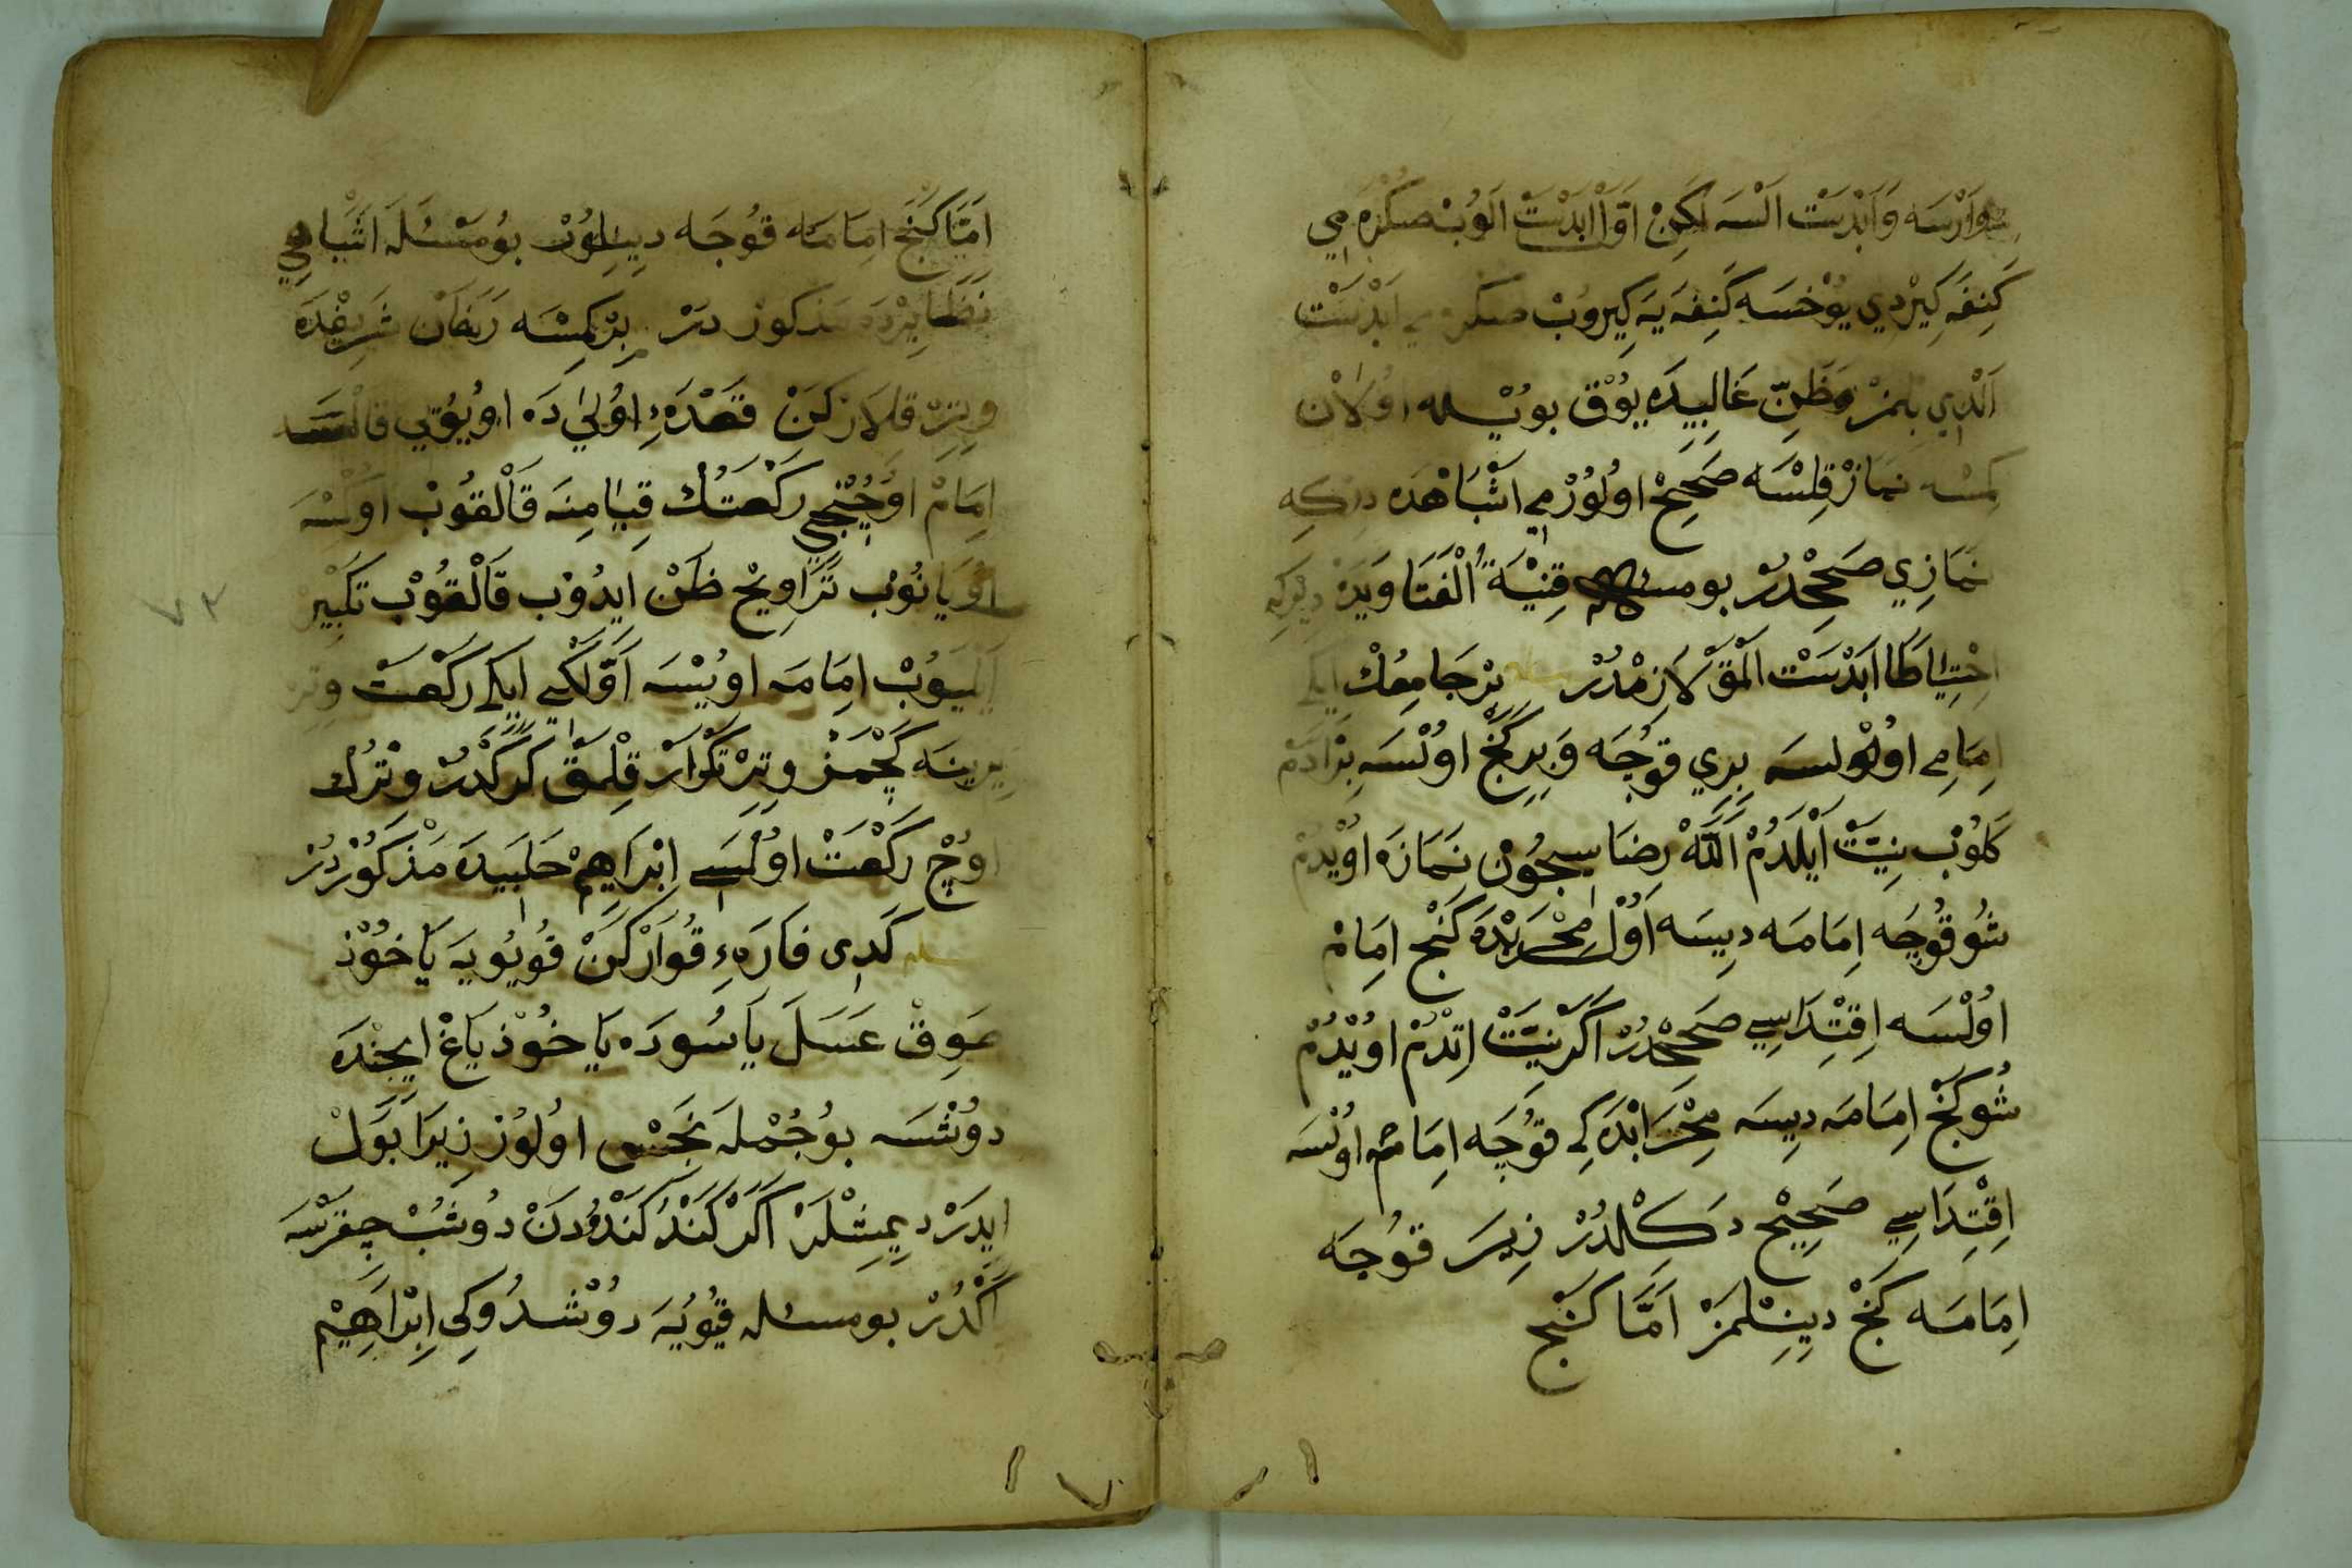 وَارْسَه وَ اَبْدَسْتْ اَلْسَه لَكِنْ اَوَّلْ اَبْدَسْتْ اَلُوبْ صُكْرَه مِي
كَنِفَه كِيرْدِي يُوخْسَه كَنِفَه يَه كِيرُوبْ صكره مي اَبْدَسْتْ
اَلْدِي بِلْمَزْ وَظَنِّ غَالِبِيدَه يُوقْ بويْله اُولَانْ
كِمْسَه نَمَازْ قِلْسَه صَحِيحْ اُولُورْمِي اَشْبَاهْدَه دركه
نَمَازِي صَحِحْدُرْ بو مسئله قِنْيَةُ الْفَتَاوَيدَه دركه
اِحْتِيَاطًا اَبْدَسْتْ اَلْمَقْ لَازِمْدُرْ مسئله بِرْ جَامِعُكْ اِيكِي
اِمَامِي اُولسَه بِرِي قُوجَه وَ بِرِ كَنْجْ اُولْسَه بِرْ اَدَمْ
كَلُوبْ نِيَّتْ اَيْلَدُمْ اَللّٰهْ رِضَاسِيجُونْ نَمَازَه اُويْدُمْ
شُو قُوجَه اِمَامَه دِيسَه اَوَّلْ مِحْرَابْدَه كَنْجْ اِمَامْ
اُولْسَه اِقْتِدَاسِي صَحِحْدُرْ اَكَرْ نِيَّتْ اِتْدُمْ اُويْدُمْ
شُو كَنْجْ اِمَامَه دِيسَه مِحْرَابْدَه كِي قُوجَه اِمَامْ اُولْسَه
اِقْتِدَاسِي صَحِيحْ دَكِلْدُرْ زِيرَ قُوجَه
اِمَامَه كَنْجْ دِينِلْمَزْ اَمَّا كَنْجْ
اَمَّا كَنْجْ اِمَامَه قُوجَه دِينِلُورْ بُو مَسْئَلَه اَشْبَاهِي
نَظَايِرْدَه مَذْكُورْ درْ بِرْ كِمْسَه رَمَضَانْ شَرِيفْدَه
وِتِرْ قِلَارْكَنْ قَعْدَهٔ اُولٰي دَه اُويُويِي قَالْسَه
اِمَامْ اُوچُنْجِي رَكْعَتُكْ قِيَامِنَه قَالْقُوبْ اُولْسَه
اُويَانُوبْ تَرَاوِيحْ ظَنْ اِيدُوبْ قَالْقُوبْ تَكْبِيرْ
اَيْلَيُوبْ اِمَامَه اُويْسَه اَوَّلْكِي اِيكِي رَكْعَتْ وِتِرْ
يِرِينَه كَچْمَزْ وِتِرْ تَكْرَارْ قِلْمَقْ كَرَكْدُرْ وِتْرُكْ
اُوچْ رَكْعَتْ اُولْسِي اِبْرَاهِيمْ حَلَبِيدَه مَذْكُورْدُرْ
مسئله كَدِى فَارَهءِ قُوَارْكَنْ قُويُويَه يَاخُوذ
صَوِقْ عَسَلَ يَا سُودَه يَاخُوذْ يَاغْ اِيچِنْدَه
دُوشْسَه بُو جُمْلَه نَجَسْ اُولُورْ زِيرَا بَوْلْ
اِيدَرْ دِيمِشْلَرْ اَكَرْ كَنْدُ كَنْدُودَنْ دُوشُبْ چِقَرْسَه
اَكْدُرْ بو مسئله قُيُويَه دُوشْدُوكِى اِبْرَاهِيمْ
٧٢